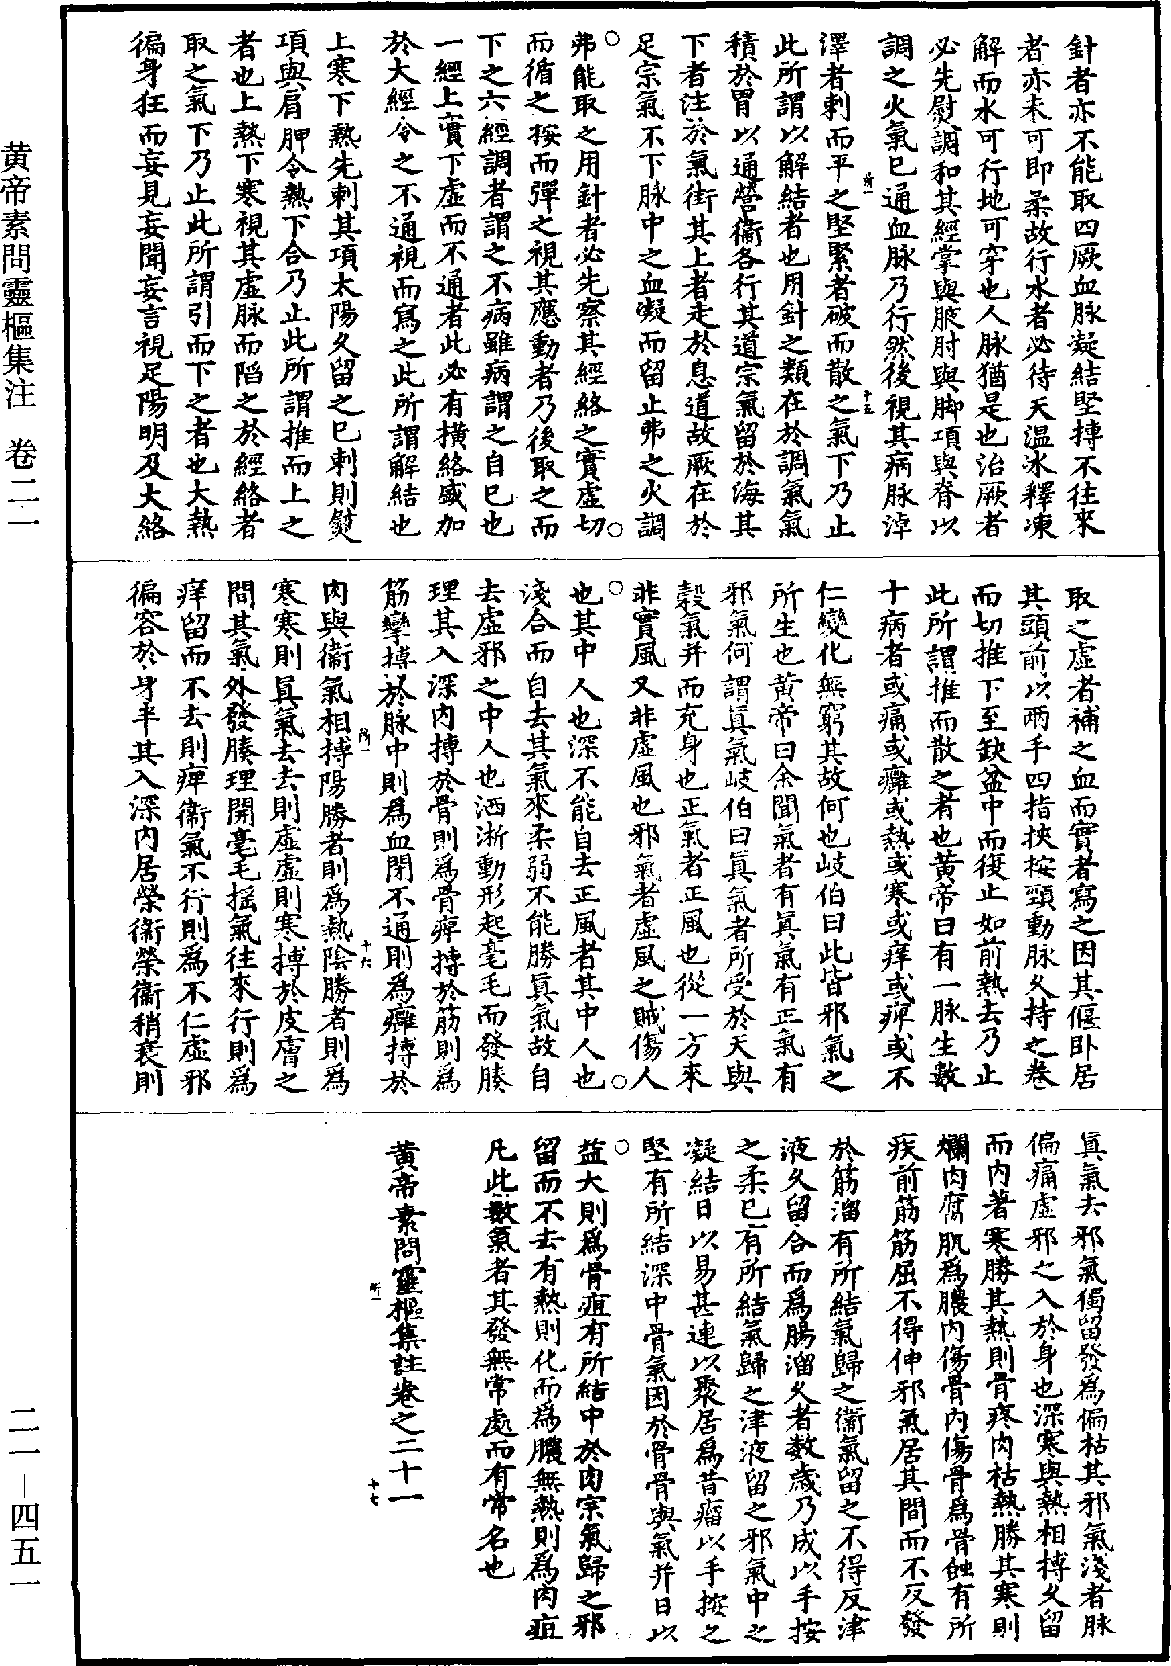 黃帝素問靈樞集注 卷二一
二一—四五一
針者亦不能取四厥血脉凝結堅摶不往來
者亦未可即柔故行水者必待天温冰釋凍
解而水可行地可穿也人脉猶是也治厥者
必先慰調和其經掌與腋肘與脚項與脊以
調之火氣已通血脉乃行然後視其病脉淖
澤者刺而平之堅緊者破而散之氣下乃止
此所謂以解結者也用針之類在於調氣氣
積於胃以通營衞各行其道宗氣留於海其
下者注於氣街其上者走於息道故厥在於
足宗氣不下脉中之血凝而留止弗之火調
弗能取之用針者必先察其經絡之實虛切
而循之按而彈之視其應動者乃後取之而
下之六經調者謂之不病雖病謂之自已也
一經上實下虛而不通者此必有橫絡盛加
於大經令之不通視而寫之此所謂解結也
上寒下熱先刺其項太陽久留之已刺則熨
項與肩胛令熱下合乃止此所謂推而上之
者也上熱下寒視其虛脉而陷之於經絡者
取之氣下乃止此所謂引而下之者也大熱
徧身狂而妄見妄聞妄言視足陽明及大絡
取之虛者補之血而實者寫之因其偃卧居
其頭前以兩手四指挾按頸動脉久持之卷
而切推下至缺盆中而復止如前熱去乃止
此所謂推而散之者也黃帝曰有一脉生數
十病者或痛或癰或熱或寒或痒或痺或不
仁變化無窮其故何也岐伯曰此皆邪氣之
所生也黃帝曰余聞氣者有眞氣有正氣有
邪氣何謂眞氣岐伯曰眞氣者所受於天與
穀氣并而充身也正氣者正風也從一方來
非實風又非虛風也邪氣者虛風之賊傷人
也其中人也深不能自去正風者其中人也
淺合而自去其氣來柔弱不能勝眞氣故自
去虛邪之中人也洒淅動形起毫毛而發腠
理其入深内摶於骨則爲骨痺摶於筋則爲
筋攣摶於脉中則爲血閉不通則爲癰摶於
肉與衞氣相摶陽勝者則爲熱陰勝者則爲
寒寒則眞氣去去則虛虛則寒摶於皮膚之
間其氣外發腠理開毫毛摇氣往來行則爲
痒留而不去則痺衞氣不行則爲不仁虛邪
徧容於身半其入深内居榮衞榮衞稍衰則
眞氣去邪氣獨留發爲偏枯其邪氣淺者脉
偏痛虛邪之入於身也深寒與熱相摶久留
而内著寒勝其熱則骨疼肉枯熱勝其寒則
爛肉腐肌爲膿内傷骨内傷骨爲骨蝕有所
疾前筋筋屈不得伸邪氣居其間而不反發
於筋溜有所結氣歸之衞氣留之不得反津
液久留合而爲腸溜久者數歲乃成以手按
之柔已有所結氣歸之津液留之邪氣中之
凝結日以易甚連以聚居爲昔瘤以手按之
堅有所結深中骨氣因於骨骨與氣并日以
益大則爲骨疽有所結中於肉宗氣歸之邪
留而不去有熱則化而爲膿無熱則爲肉疽
凡此數氣者其發無常處而有常名也
黃帝素問靈樞集註卷之二十一
所一
十五
所一
十六
所一
十七